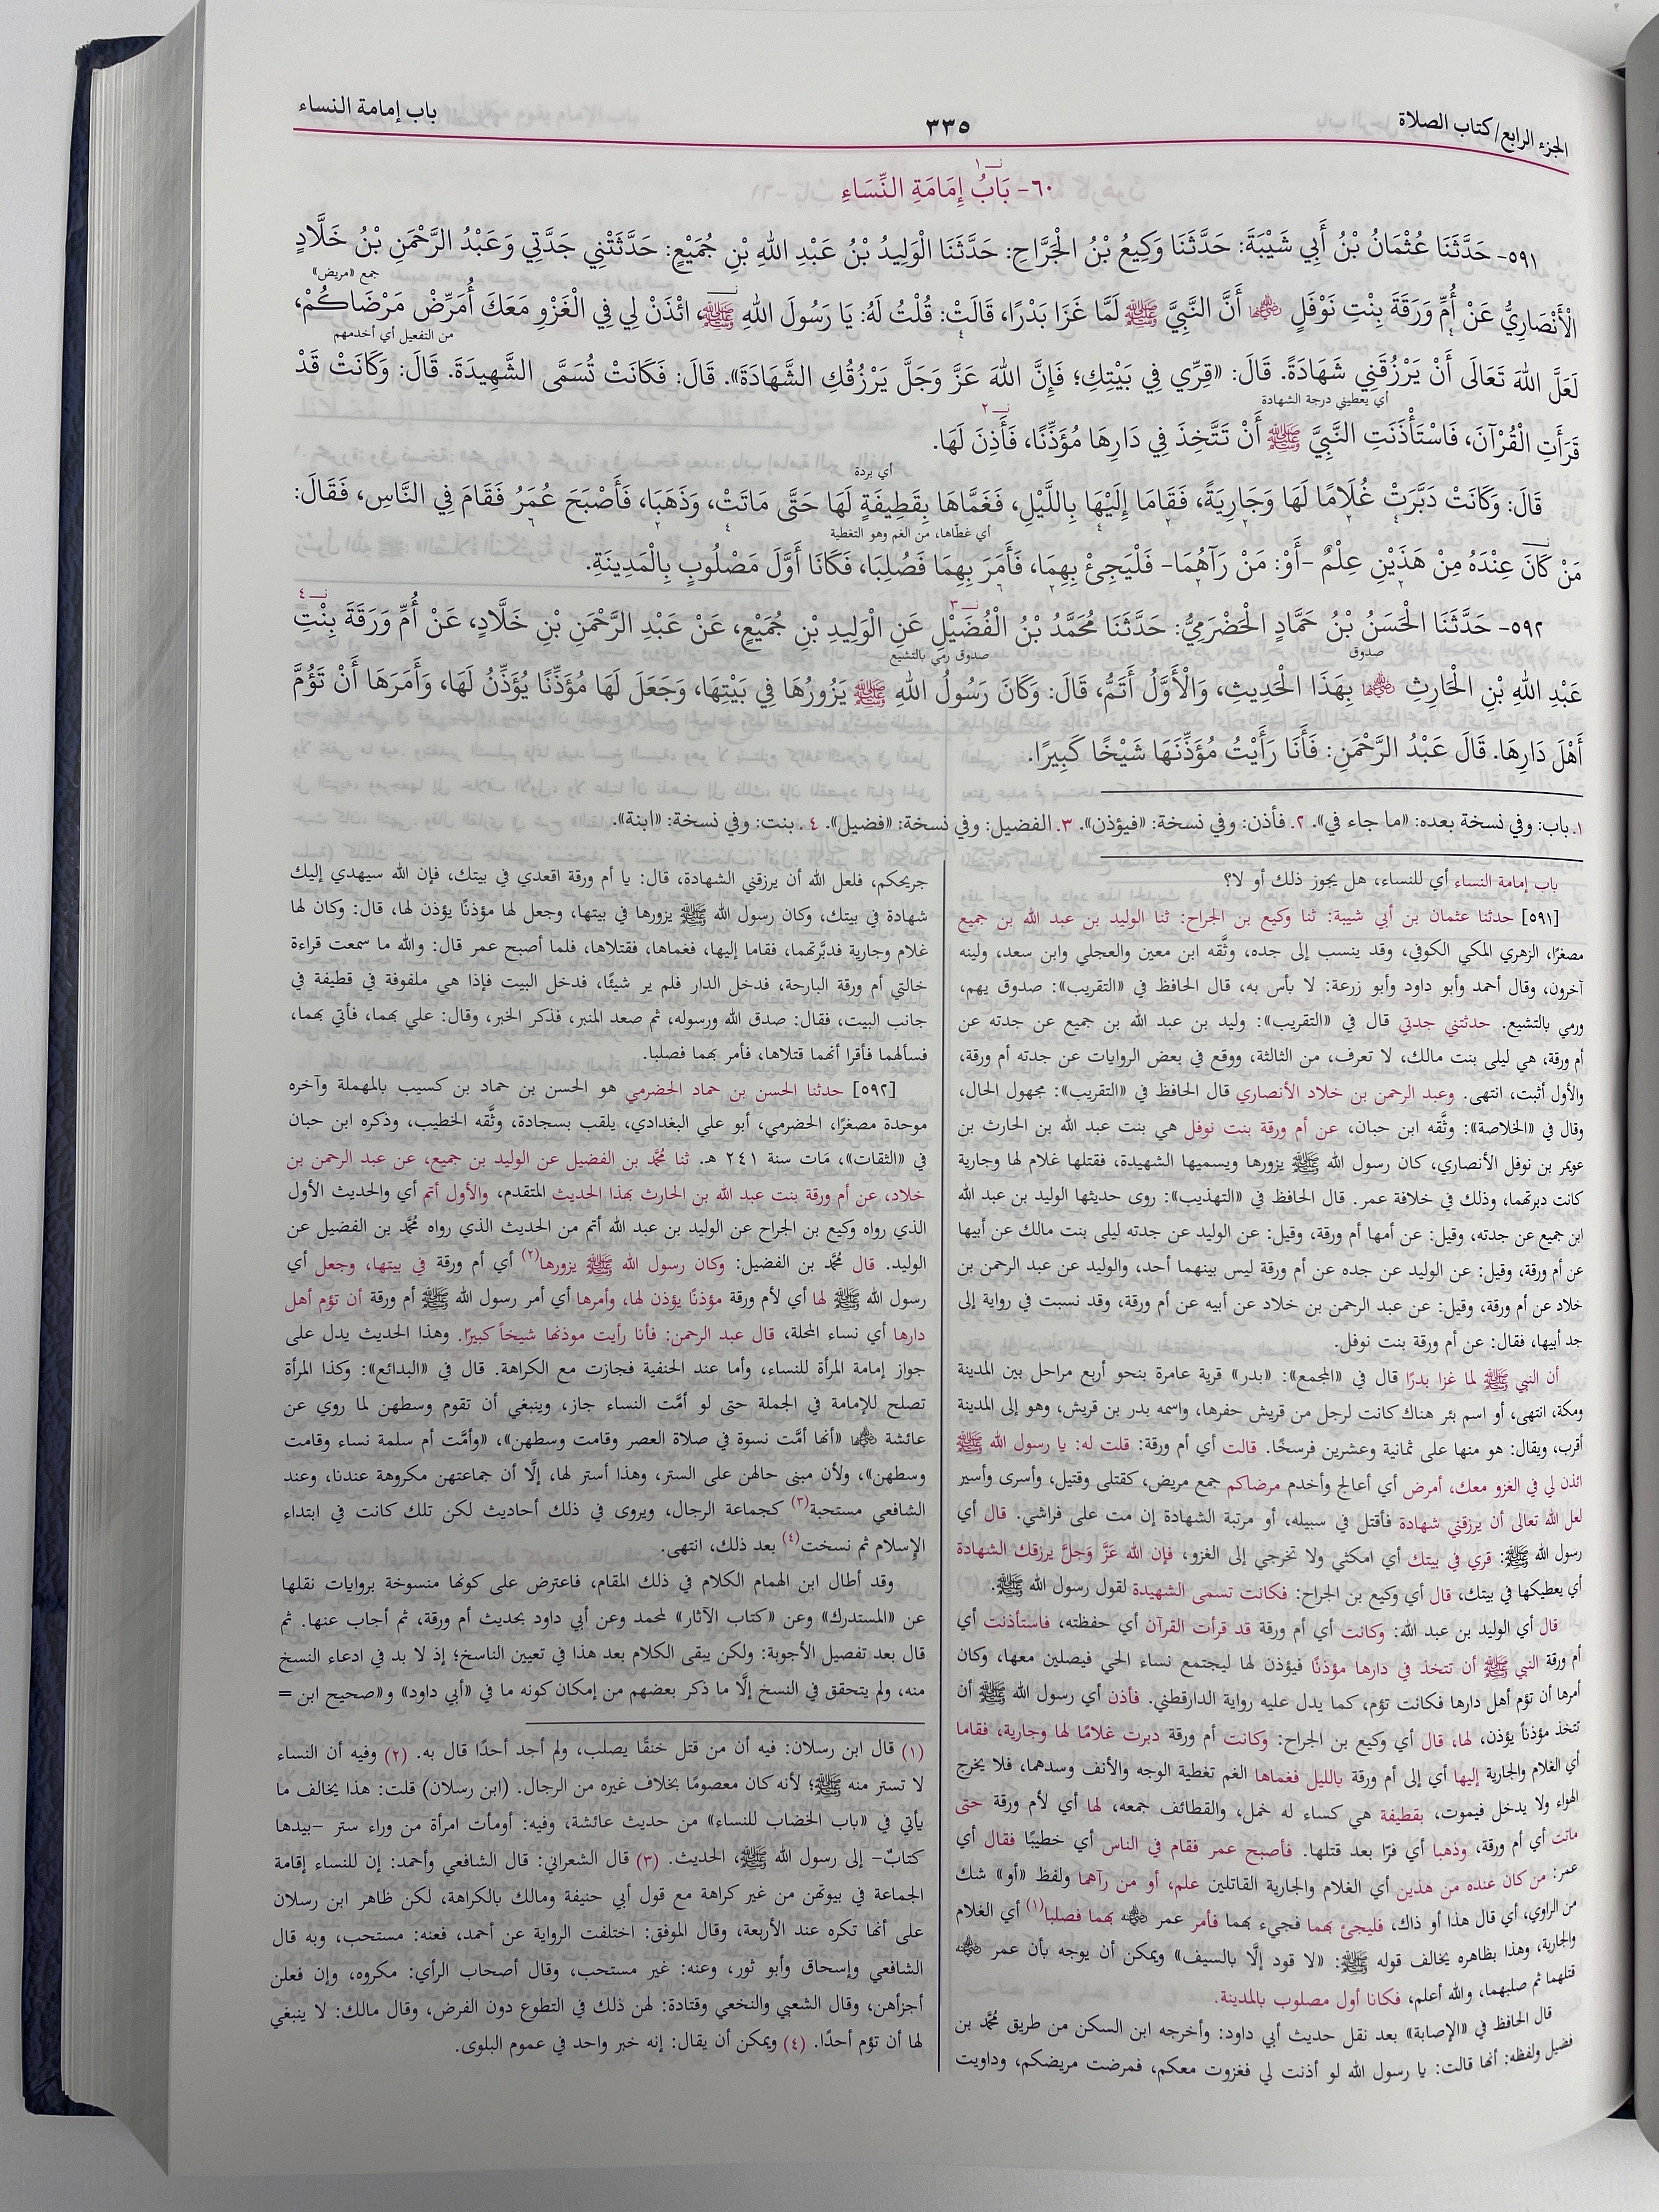 الجزء الرابع/كتاب الصلاة
٣٣٥
باب إمامة النساء
نـ ١
٦٠- بَابُ إِمَامَةِ النِّسَاءِ
٥٩١- حَدَّثَنَا عُثْمَانُ بْنُ أَبِي شَيْبَةَ: حَدَّثَنَا وَكِيعُ بْنُ الْجَرَّاحِ: حَدَّثَنَا الْوَلِيدُ بْنُ عَبْدِ اللهِ بْنِ جُمَيْعٍ: حَدَّثَتْنِي جَدَّتِي وَعَبْدُ الرَّحْمَنِ بْنُ خَلَّادٍ
جمع «مريض»
الْأَنْصَارِيُّ عَنْ أُمِّ وَرَقَةَ بِنْتِ نَوْفَلٍ رضي الله عنها أَنَّ النَّبِيَّ ﷺ لَمَّا غَزَا بَدْرًا، قَالَتْ: قُلْتُ لَهُ: يَا رَسُولَ اللهِ ﷺ، ائْذَنْ لِي فِي الْغَزْوِ مَعَكَ أُمَرِّضْ مَرْضَاكُمْ،
من التفعيل أي أخدمهم
لَعَلَّ اللهَ تَعَالَى أَنْ يَرْزُقَنِي شَهَادَةً. قَالَ: «قِرِّي فِي بَيْتِكِ؛ فَإِنَّ اللهَ عَزَّ وَجَلَّ يَرْزُقُكِ الشَّهَادَةَ». قَالَ: فَكَانَتْ تُسَمَّى الشَّهِيدَةَ. قَالَ: وَكَانَتْ قَدْ
أي يعطيني درجة الشهادة
نـ ٢
قَرَأَتِ الْقُرْآنَ، فَاسْتَأْذَنَتِ النَّبِيَّ ﷺ أَنْ تَتَّخِذَ فِي دَارِهَا مُؤَذِّنًا، فَأَذِنَ لَهَا.
أي بردة
قَالَ: وَكَانَتْ دَبَّرَتْ غُلَامًا لَهَا وَجَارِيَةً، فَقَامَا إِلَيْهَا بِاللَّيْلِ، فَغَمَّاهَا بِقَطِيفَةٍ لَهَا حَتَّى مَاتَتْ، وَذَهَبَا، فَأَصْبَحَ عُمَرُ فَقَامَ فِي النَّاسِ، فَقَالَ:
أي غطّاها، من الغم وهو التغطية
مَنْ كَانَ عِنْدَهُ مِنْ هَذَيْنِ عِلْمٌ -أَوْ: مَنْ رَآهُمَا- فَلْيَجِئْ بِهِمَا، فَأَمَرَ بِهِمَا فَصُلِبَا، فَكَانَا أَوَّلَ مَصْلُوبٍ بِالْمَدِينَةِ.
نـ ٣
نـ ٤
٥٩٢- حَدَّثَنَا الْحَسَنُ بْنُ حَمَّادٍ الْحَضْرَمِيُّ: حَدَّثَنَا مُحَمَّدُ بْنُ الْفُضَيْلِ عَنِ الْوَلِيدِ بْنِ جُمَيْعٍ، عَنْ عَبْدِ الرَّحْمَنِ بْنِ خَلَّادٍ، عَنْ أُمِّ وَرَقَةَ بِنْتِ
صدوق
صدوق رمي بالتشيع
عَبْدِ اللهِ بْنِ الْحَارِثِ رضي الله عنها بِهَذَا الْحَدِيثِ، وَالْأَوَّلُ أَتَمُّ، قَالَ: وَكَانَ رَسُولُ اللهِ ﷺ يَزُورُهَا فِي بَيْتِهَا، وَجَعَلَ لَهَا مُؤَذِّنًا يُؤَذِّنُ لَهَا، وَأَمَرَهَا أَنْ تَؤُمَّ
أَهْلَ دَارِهَا. قَالَ عَبْدُ الرَّحْمَنِ: فَأَنَا رَأَيْتُ مُؤَذِّنَهَا شَيْخًا كَبِيرًا.
١. باب: وفي نسخة بعده: «ما جاء في». ٢. فأذن: وفي نسخة: «فيؤذن». ٣. الفضيل: وفي نسخة: «فضيل». ٤. بنت: وفي نسخة: «ابنة».
باب إمامة النساء أي للنساء، هل يجوز ذلك أو لا؟
[٥٩١] حدثنا عثمان بن أبي شيبة: ثنا وكيع بن الجراح: ثنا الوليد بن عبد الله بن جميع
مصغرًا، الزهري المكي الكوفي، وقد ينسب إلى جده، وثَّقه ابن معين والعجلي وابن سعد، ولينه
آخرون، وقال أحمد وأبو داود وأبو زرعة: لا بأس به، قال الحافظ في «التقريب»: صدوق يهم،
ورمي بالتشيع. حدثتني جدتي قال في «التقريب»: وليد بن عبد الله بن جميع عن جدته عن
أم ورقة، هي ليلى بنت مالك، لا تعرف، من الثالثة، ووقع في بعض الروايات عن جدته أم ورقة،
والأول أثبت، انتهى. وعبد الرحمن بن خلاد الأنصاري قال الحافظ في «التقريب»: مجهول الحال،
وقال في «الخلاصة»: وثَّقه ابن حبان، عن أم ورقة بنت نوفل هي بنت عبد الله بن الحارث بن
عويمر بن نوفل الأنصاري، كان رسول الله ﷺ يزورها ويسميها الشهيدة، فقتلها غلام لها وجارية
كانت دبرتهما، وذلك في خلافة عمر. قال الحافظ في «التهذيب»: روى حديثها الوليد بن عبد الله
ابن جميع عن جدته، وقيل: عن أمها أم ورقة، وقيل: عن الوليد عن جدته ليلى بنت مالك عن أبيها
عن أم ورقة، وقيل: عن الوليد عن جده عن أم ورقة ليس بينهما أحد، والوليد عن عبد الرحمن بن
خلاد عن أم ورقة، وقيل: عن عبد الرحمن بن خلاد عن أبيه عن أم ورقة، وقد نسبت في رواية إلى
جد أبيها، فقال: عن أم ورقة بنت نوفل.
أن النبي ﷺ لما غزا بدرًا قال في «المجمع»: «بدر» قرية عامرة بنحو أربع مراحل بين المدينة
ومكة، انتهى، أو اسم بئر هناك كانت لرجل من قريش حفرها، واسمه بدر بن قريش، وهو إلى المدينة
أقرب، ويقال: هو منها على ثمانية وعشرين فرسخًا. قالت أي أم ورقة: قلت له: يا رسول الله ﷺ
ائذن لي في الغزو معك، أمرض أي أعالج وأخدم مرضاكم جمع مريض، كقتلى وقتيل، وأسرى وأسير
لعل الله تعالى أن يرزقني شهادة فأقتل في سبيله، أو مرتبة الشهادة إن مت على فراشي. قال أي
رسول الله ﷺ: قري في بيتك أي امكثي ولا تخرجي إلى الغزو، فإن الله عَزَّ وَجَلَّ يرزقك الشهادة
أي يعطيكها في بيتك، قال أي وكيع بن الجراح: فكانت تسمى الشهيدة لقول رسول الله ﷺ.
قال أي الوليد بن عبد الله: وكانت أي أم ورقة قد قرأت القرآن أي حفظته، فاستأذنت أي
أم ورقة النبي ﷺ أن تتخذ في دارها مؤذنًا فيؤذن لها ليجتمع نساء الحي فيصلين معها، وكان
أمرها أن تؤم أهل دارها فكانت تؤم، كما يدل عليه رواية الدارقطني. فأذن أي رسول الله ﷺ أن
تتخذ مؤذناً يؤذن، لها، قال أي وكيع بن الجراح: وكانت أم ورقة دبرت غلامًا لها وجارية، فقاما
أي الغلام والجارية إليها أي إلى أم ورقة بالليل فغماها الغم تغطية الوجه والأنف وسدهما، فلا يخرج
الهواء ولا يدخل فيموت، بقطيفة هي كساء له خمل، والقطائف جمعه، لها أي لأم ورقة حتى
ماتت أي أم ورقة، وذهبا أي فرّا بعد قتلها. فأصبح عمر فقام في الناس أي خطيبًا فقال أي
عمر: من كان عنده من هذين أي الغلام والجارية القاتلين علم، أو من رآهما ولفظ «أو» شك
من الراوي، أي قال هذا أو ذاك، فليجئ بهما فجيء بهما فأمر عمر رضي الله عنه بهما فصلبا(١) أي الغلام
والجارية، وهذا بظاهره يخالف قوله ﷺ: «لا قود إلَّا بالسيف» ويمكن أن يوجه بأن عمر رضي الله عنه
قتلهما ثم صلبهما، والله أعلم، فكانا أول مصلوب بالمدينة.
قال الحافظ في «الإصابة» بعد نقل حديث أبي داود: وأخرجه ابن السكن من طريق محمَّد بن
فضيل ولفظه: أنها قالت: يا رسول الله لو أذنت لي فغزوت معكم، فمرضت مريضكم، وداويت
جريحكم، فلعل الله أن يرزقني الشهادة، قال: يا أم ورقة اقعدي في بيتك، فإن الله سيهدي إليك
شهادة في بيتك، وكان رسول الله ﷺ يزورها في بيتها، وجعل لها مؤذنًا يؤذن لها، قال: وكان لها
غلام وجارية فدبَّرتهما، فقاما إليها، فغماها، فقتلاها، فلما أصبح عمر قال: والله ما سمعت قراءة
خالتي أم ورقة البارحة، فدخل الدار فلم ير شيئًا، فدخل البيت فإذا هي ملفوفة في قطيفة في
جانب البيت، فقال: صدق الله ورسوله، ثم صعد المنبر، فذكر الخبر، وقال: علي بهما، فأتي بهما،
فسألهما فأقرا أنهما قتلاها، فأمر بهما فصلبا.
[٥٩٢] حدثنا الحسن بن حماد الحضرمي هو الحسن بن حماد بن كسيب بالمهملة وآخره
موحدة مصغرًا، الحضرمي، أبو علي البغدادي، يلقب بسجادة، وثَّقه الخطيب، وذكره ابن حبان
في «الثقات»، مَات سنة ٢٤١ هـ. ثنا محمَّد بن الفضيل عن الوليد بن جميع، عن عبد الرحمن بن
خلاد، عن أم ورقة بنت عبد الله بن الحارث بهذا الحديث المتقدم، والأول أتم أي والحديث الأول
الذي رواه وكيع بن الجراح عن الوليد بن عبد الله أتم من الحديث الذي رواه محمَّد بن الفضيل عن
الوليد. قال محمَّد بن الفضيل: وكان رسول الله ﷺ يزورها(٢) أي أم ورقة في بيتها، وجعل أي
رسول الله ﷺ لها أي لأم ورقة مؤذنًا يؤذن لها، وأمرها أي أمر رسول الله ﷺ أم ورقة أن تؤم أهل
دارها أي نساء المحلة، قال عبد الرحمن: فأنا رأيت موذنها شيخاً كبيرًا. وهذا الحديث يدل على
جواز إمامة المرأة للنساء، وأما عند الحنفية فجازت مع الكراهة. قال في «البدائع»: وكذا المرأة
تصلح للإمامة في الجملة حتى لو أمَّت النساء جاز، وينبغي أن تقوم وسطهن لما روي عن
عائشة رضي الله عنها «أنها أمَّت نسوة في صلاة العصر وقامت وسطهن»، «وأمَّت أم سلمة نساء وقامت
وسطهن»، ولأن مبنى حالهن على الستر، وهذا أستر لها، إلَّا أن جماعتهن مكروهة عندنا، وعند
الشافعي مستحبة(٣) كجماعة الرجال، ويروى في ذلك أحاديث لكن تلك كانت في ابتداء
الإسلام ثم نسخت(٤) بعد ذلك، انتهى.
وقد أطال ابن الهمام الكلام في ذلك المقام، فاعترض على كونها منسوخة بروايات نقلها
عن «المستدرك» وعن «كتاب الآثار» لمحمد وعن أبي داود بحديث أم ورقة، ثم أجاب عنها. ثم
قال بعد تفصيل الأجوبة: ولكن يبقى الكلام بعد هذا في تعيين الناسخ؛ إذ لا بد في ادعاء النسخ
منه، ولم يتحقق في النسخ إلَّا ما ذكر بعضهم من إمكان كونه ما في «أبي داود» و«صحيح ابن =
(١) قال ابن رسلان: فيه أن من قتل خنقًا يصلب، ولم أجد أحدًا قال به. (٢) وفيه أن النساء
لا تستر منه ﷺ؛ لأنه كان معصومًا بخلاف غيره من الرجال. (ابن رسلان) قلت: هذا يخالف ما
يأتي في «باب الخضاب للنساء» من حديث عائشة، وفيه: أومأت امرأة من وراء ستر -بيدها
كتابٌ- إلى رسول الله ﷺ، الحديث. (٣) قال الشعراني: قال الشافعي وأحمد: إن للنساء إقامة
الجماعة في بيوتهن من غير كراهة مع قول أبي حنيفة ومالك بالكراهة، لكن ظاهر ابن رسلان
على أنها تكره عند الأربعة، وقال الموفق: اختلفت الرواية عن أحمد، فعنه: مستحب، وبه قال
الشافعي وإسحاق وأبو ثور، وعنه: غير مستحب، وقال أصحاب الرأي: مكروه، وإن فعلن
أجزأهن، وقال الشعبي والنخعي وقتادة: لهن ذلك في التطوع دون الفرض، وقال مالك: لا ينبغي
لها أن تؤم أحدًا. (٤) ويمكن أن يقال: إنه خبر واحد في عموم البلوى.